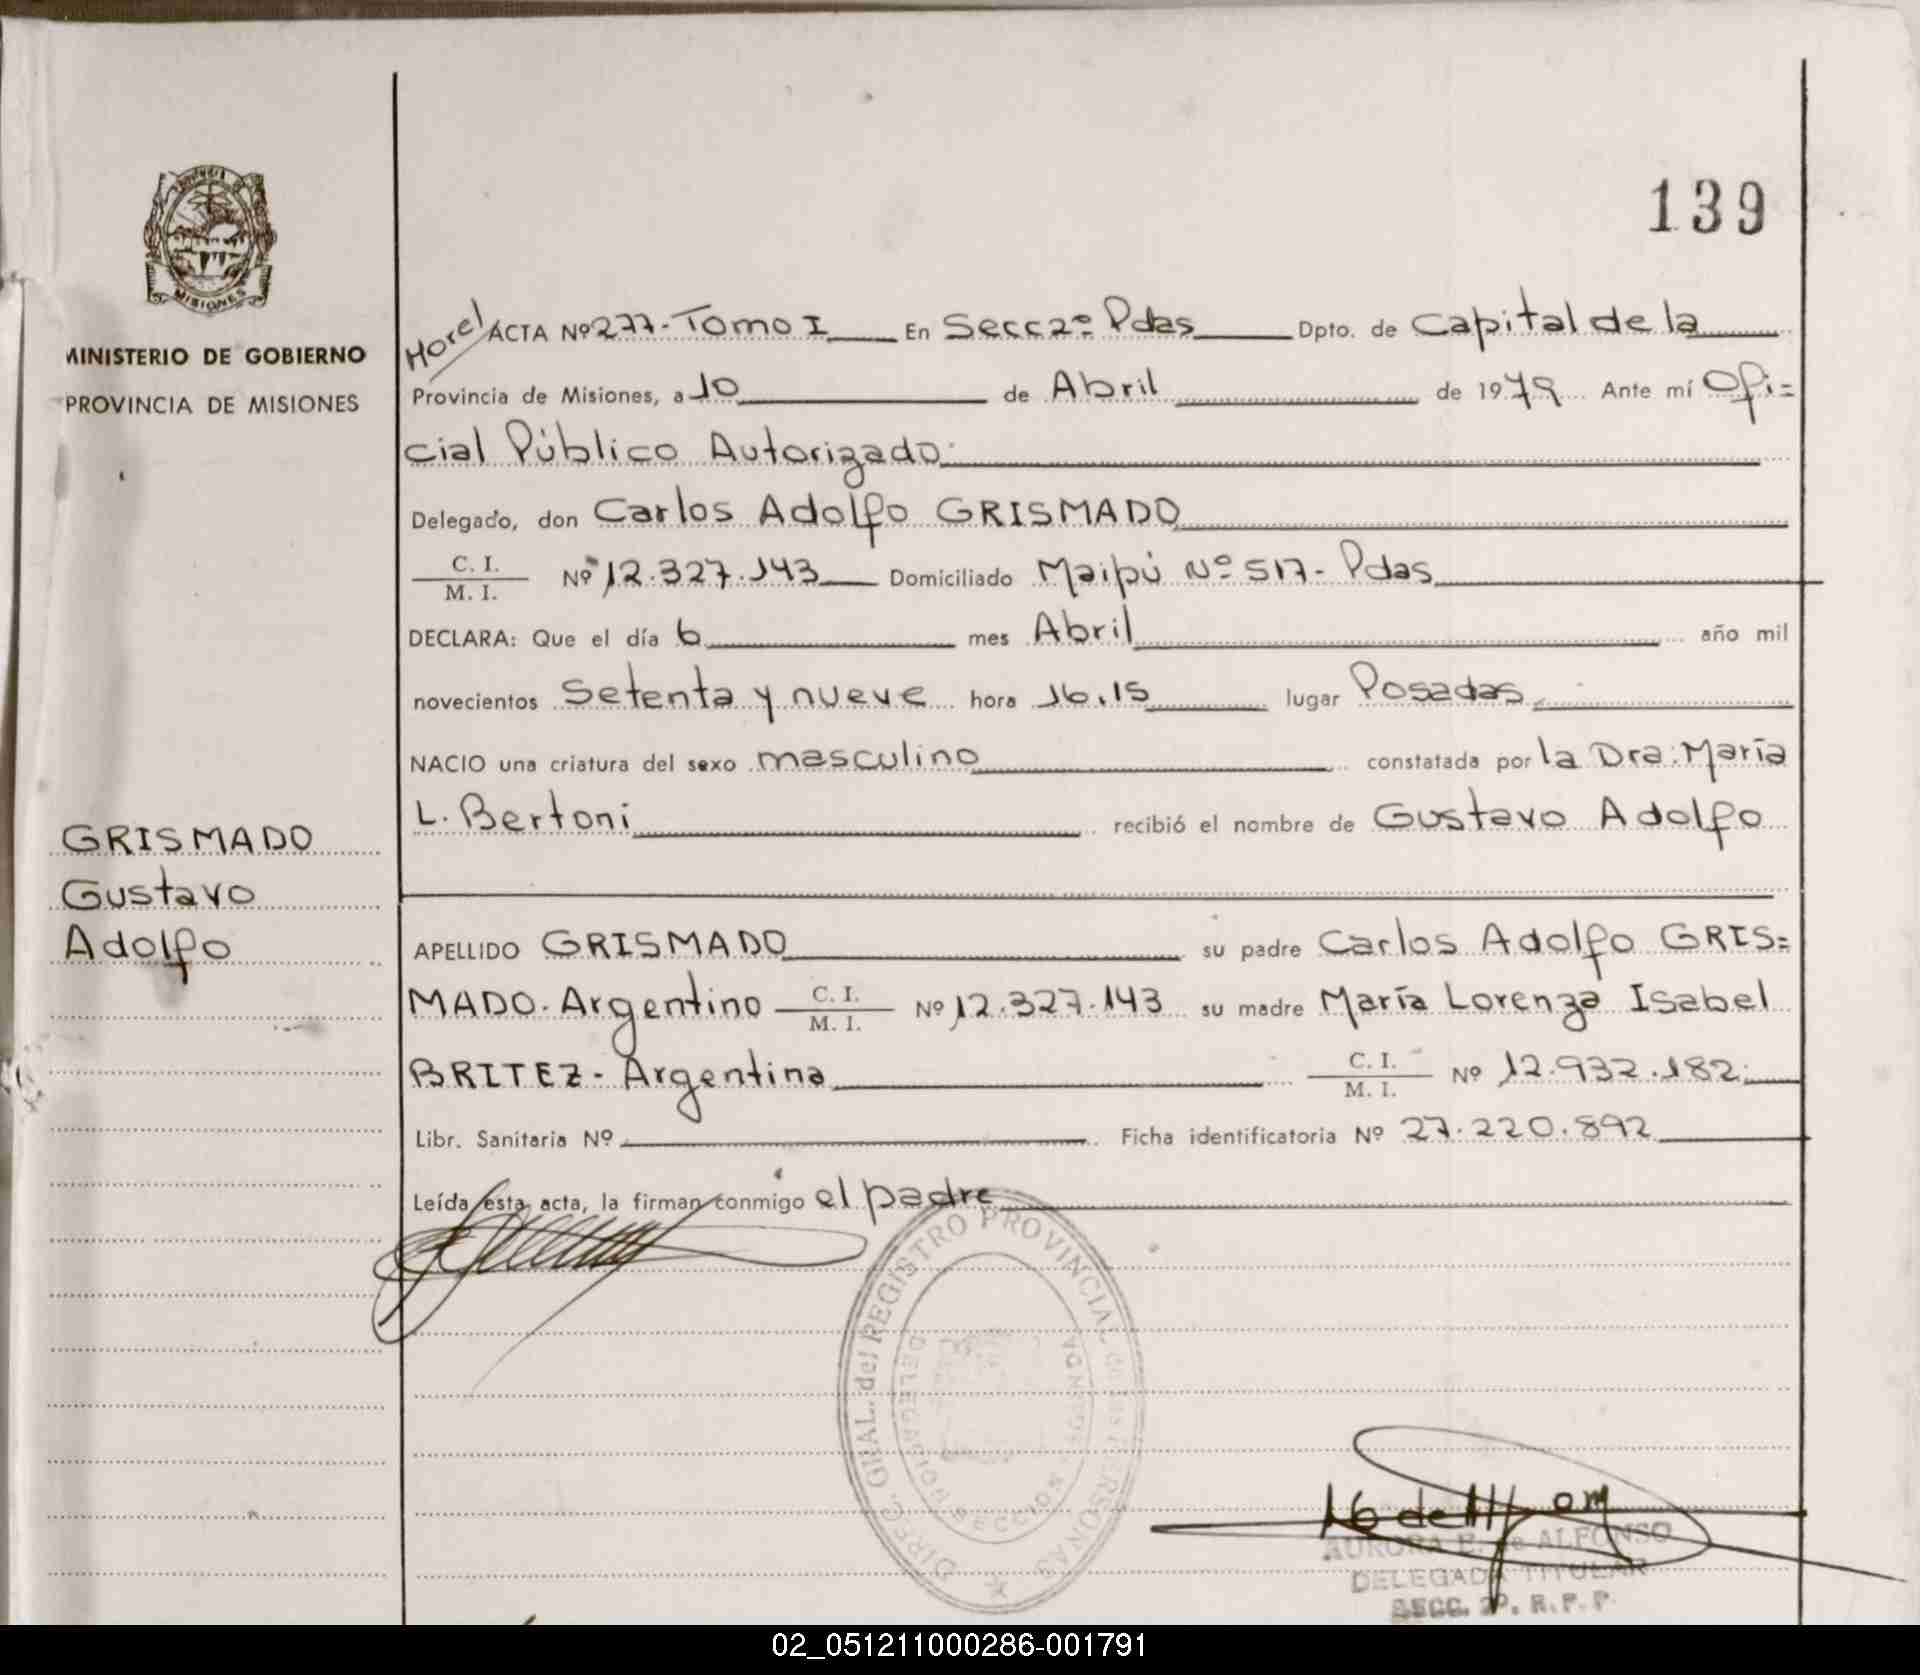 139
MINISTERIO DE GOBIERNO
PROVINCIA DE MISIONES
ACTA Nº 277-Tomo I En Secc 2º Pdas Dpto. de Capital de la
Provincia de Misiones, a 10 de Abril de 1979 Ante mí Ofi=
cial Público Autorizado.
Delegado, don Carlos Adolfo GRISMADO
C. I.
M. I. Nº 12.327.143 Domiciliado Maipú Nº 517- Pdas
DECLARA: Que el día 6 mes Abril año mil
novecientos Setenta y nueve hora 16.15 lugar Posadas
NACIO una criatura del sexo masculino constatada por la Dra: María
L. Bertoni recibió el nombre de Gustavo Adolfo
GRISMADO
Gustavo
Adolfo
APELLIDO GRISMADO su padre Carlos Adolfo GRIS=
MADO. Argentino C. I.
M. I. Nº 12.327.143 su madre María Lorenza Isabel
BRITEZ- Argentina C. I.
M. I. Nº 12.932.182.
Libr. Sanitaria Nº Ficha identificatoria Nº 27.220.892
Leída esta acta, la firman conmigo el padre
DIREC. GRAL. del REGISTRO PROVINCIAL de las PERSONAS
DELEGACION SECCION SEGUNDA
AURORA E. de ALFONSO
DELEGADA TITULAR
SECC. 2º. R. P. P.
02_051211000286-001791